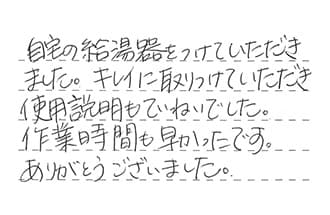 自宅の給湯器をつけていただき
ました。キレイに取りつけていただき
使用説明もていねいでした。
作業時間も早かったです。
ありがとうございました。